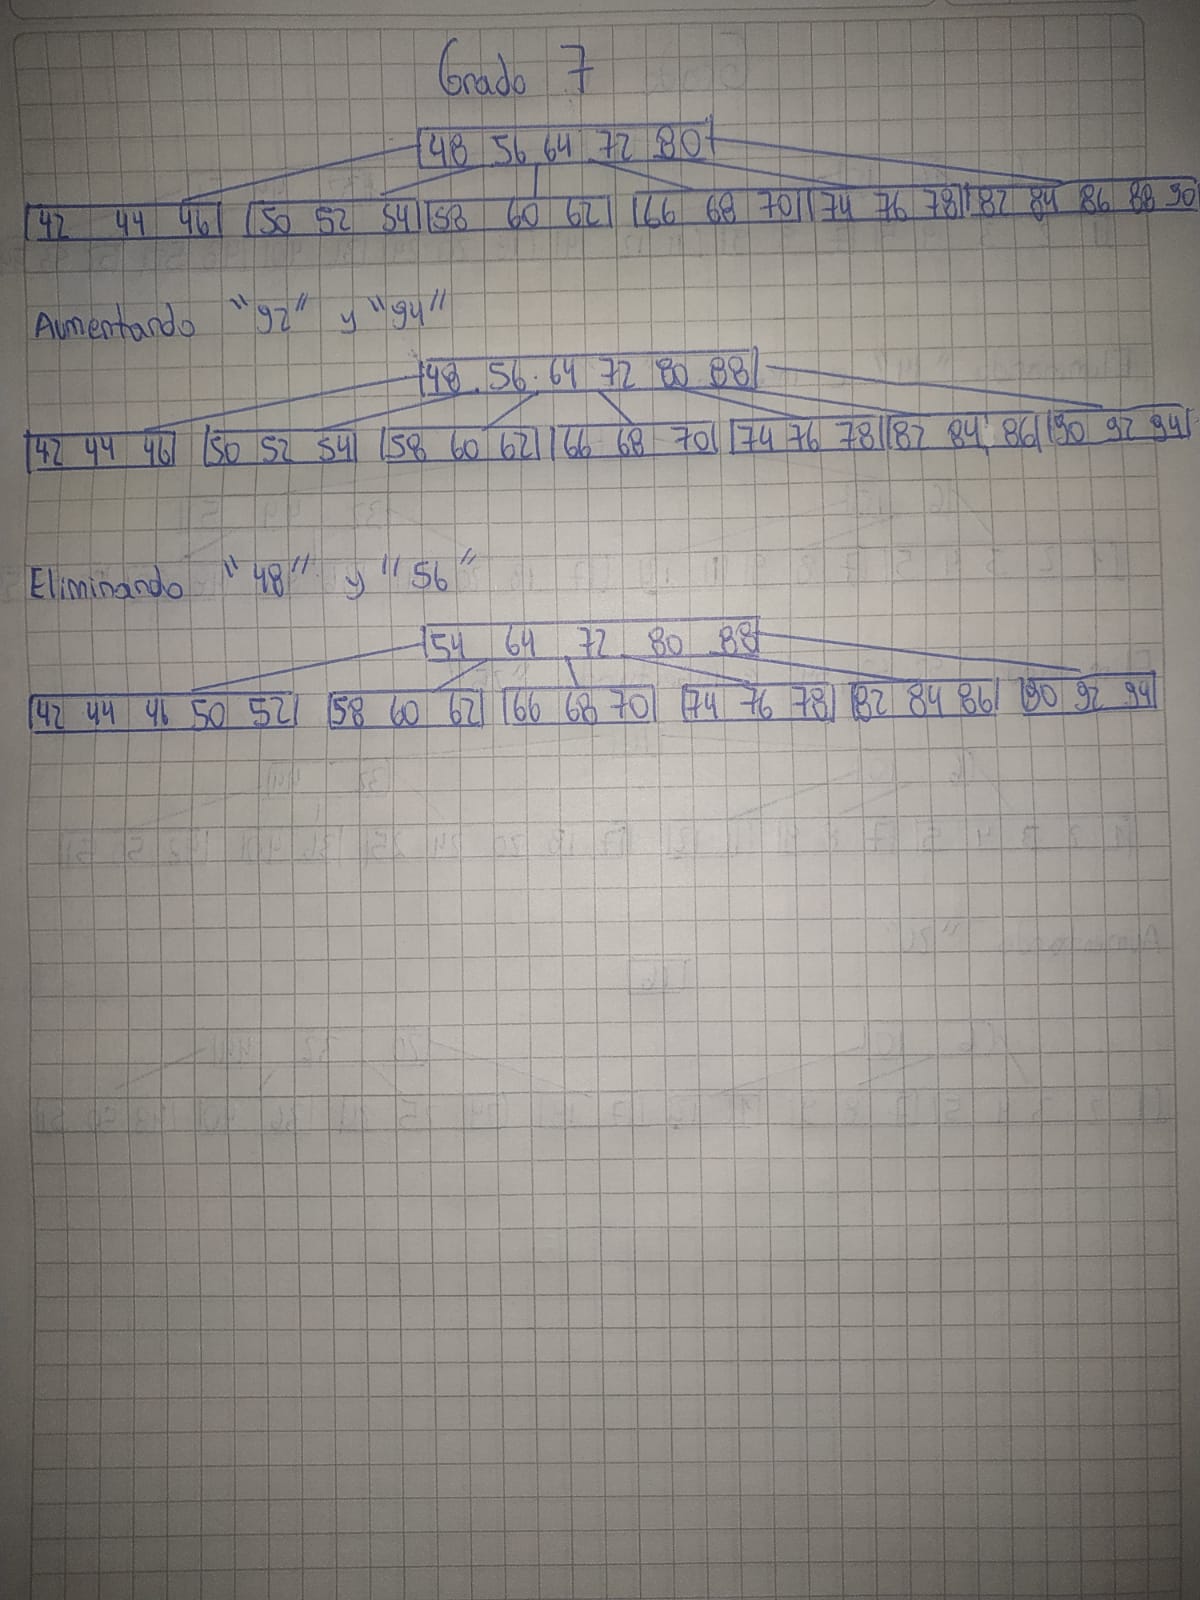 Grado 7
48 56 64 72 80
42 44 46 50 52 54 58 60 62 66 68 70 74 76 78 82 84 86 88 90
Aumentando "92" y "94"
48 56 64 72 80 88
42 44 46 50 52 54 58 60 62 66 68 70 74 76 78 82 84 86 90 92 94
Eliminando "48" y "56"
54 64 72 80 88
42 44 46 50 52 58 60 62 66 68 70 74 76 78 82 84 86 90 92 94